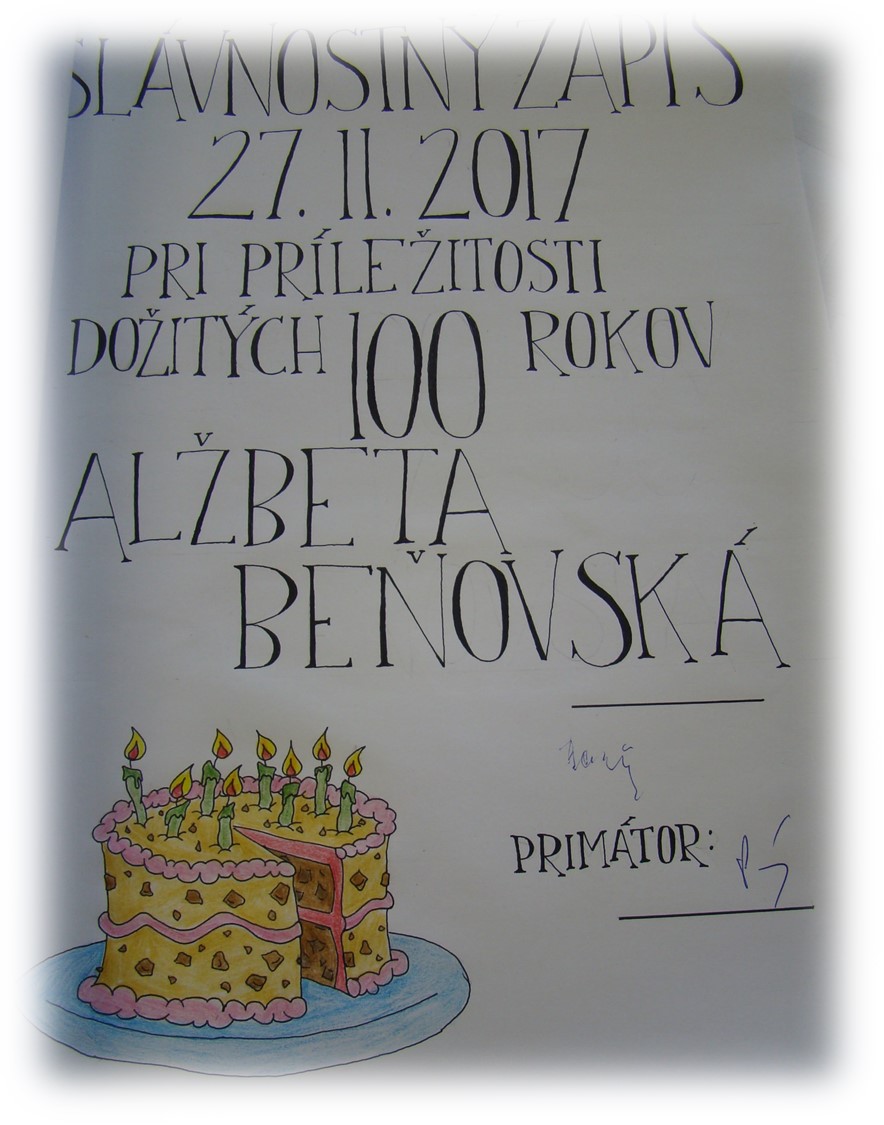 SLÁVNOSTNÝ ZÁPIS
27. 11. 2017
PRI PRÍLEŽITOSTI
DOŽITÝCH 100 ROKOV
ALŽBETA
BEŇOVSKÁ
PRIMÁTOR: